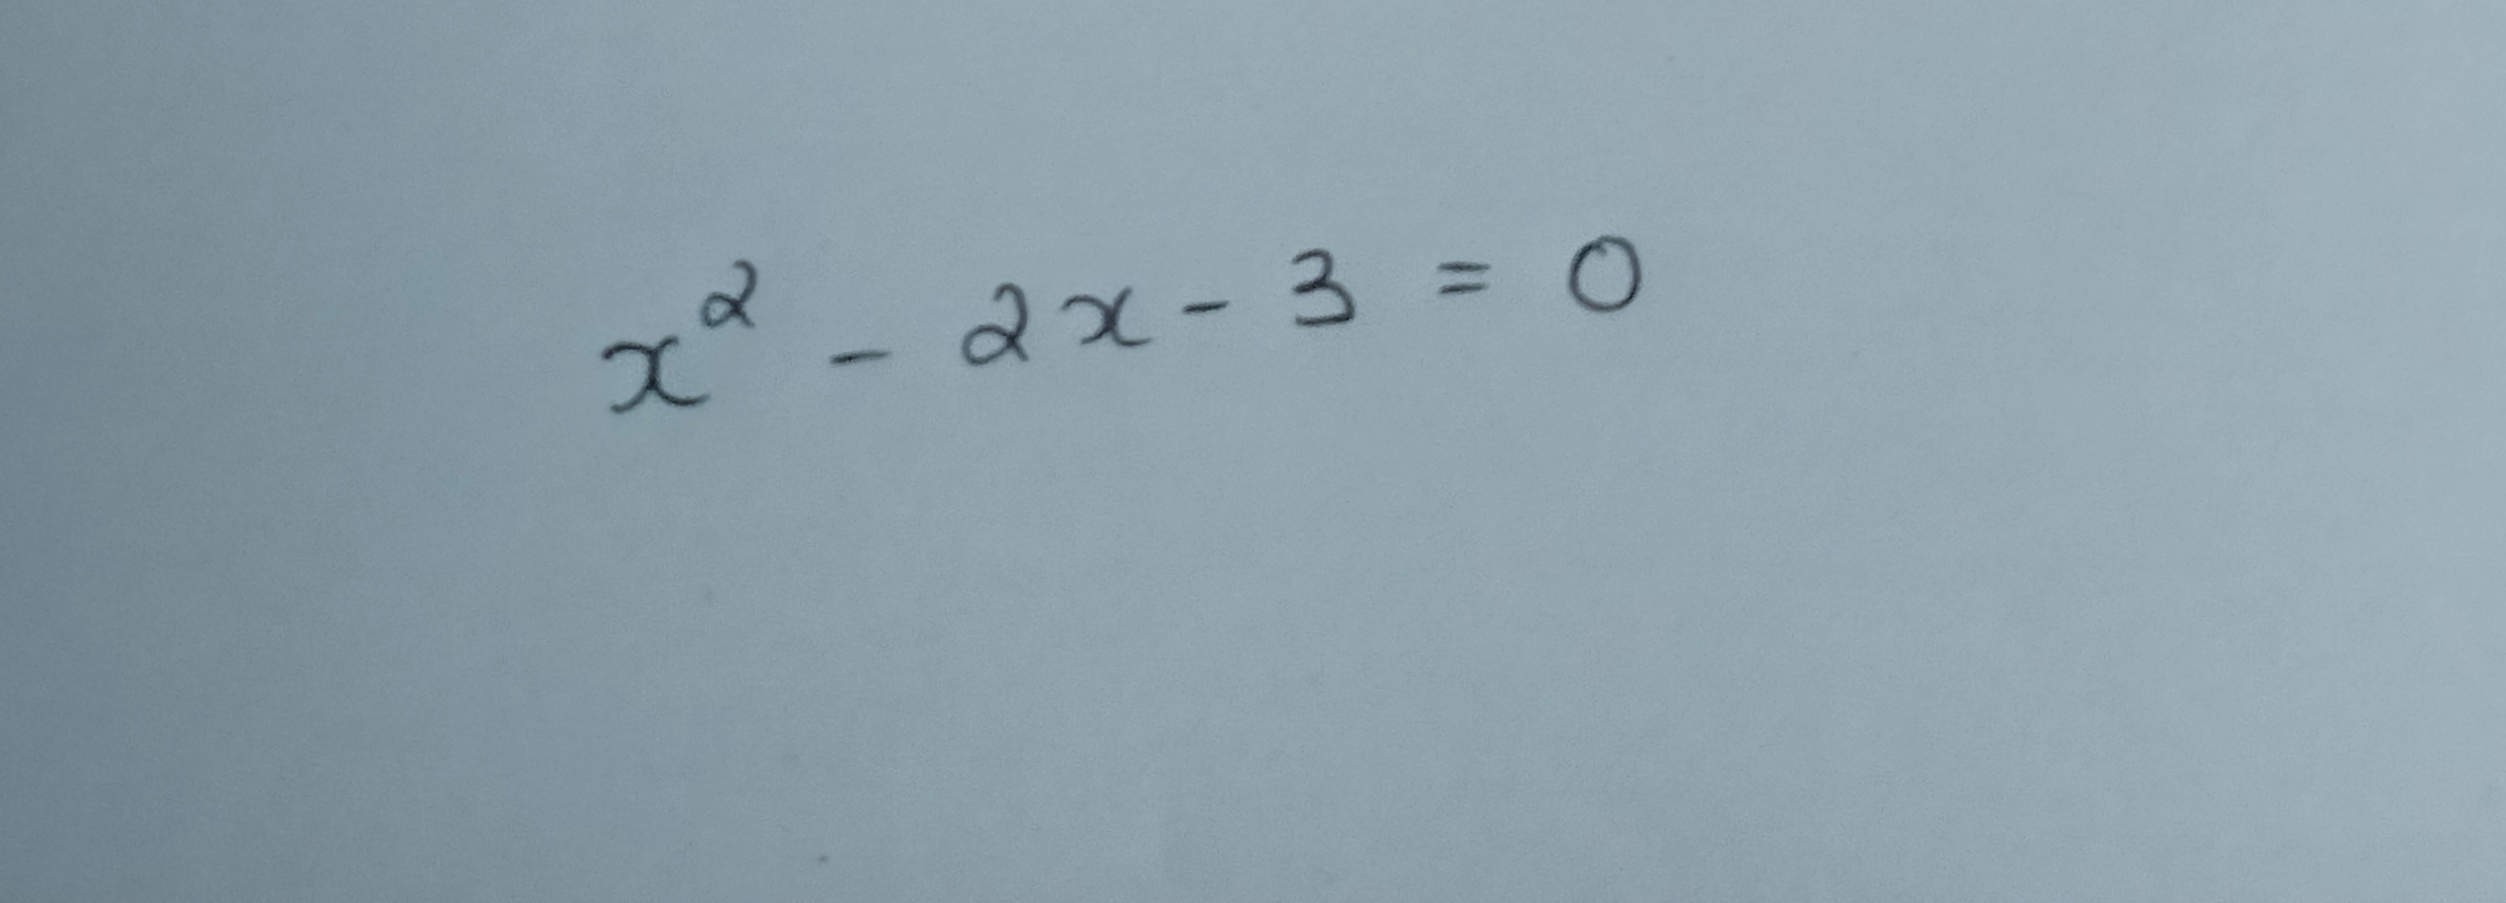 x² - 2x - 3 = 0